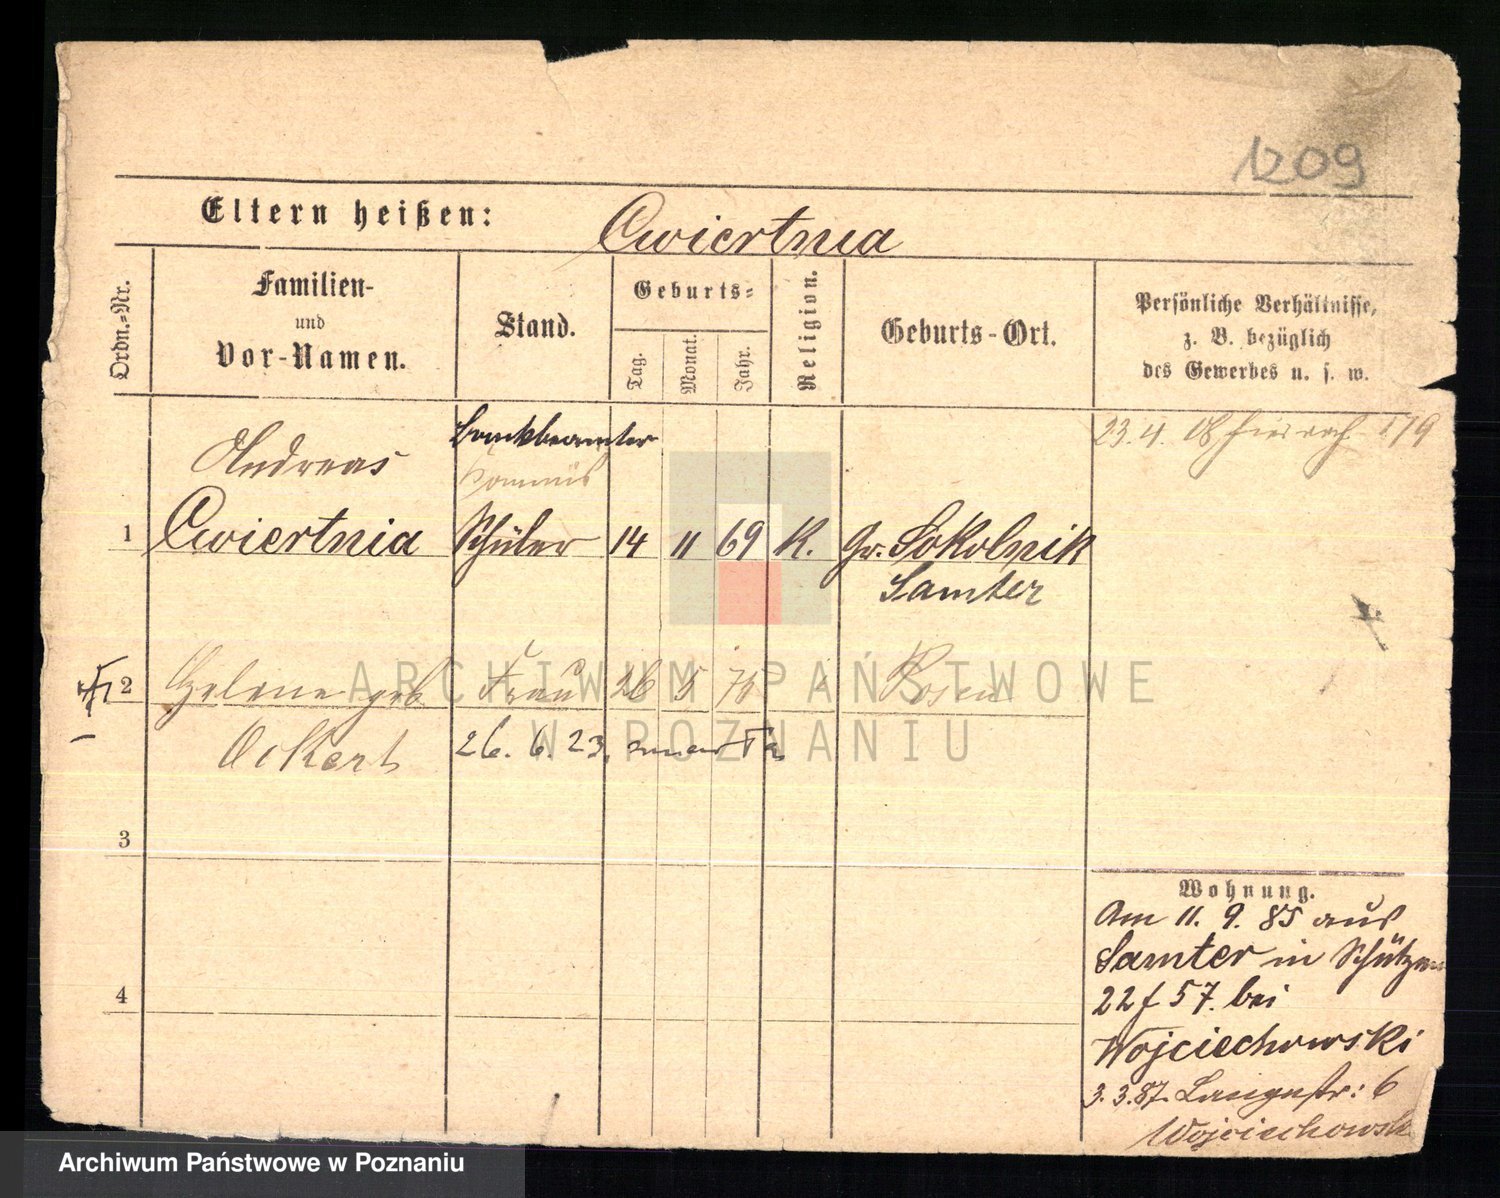 1209
Eltern heißen: Cwiertnia
Ordn.-Nr.
Familien-
und
Vor-Namen.
Stand.
Geburts-
Tag.
Monat.
Jahr.
Religion.
Geburts-Ort.
Persönliche Verhältnisse,
z. B. bezüglich
des Gewerbes u. s. w.
23. 4. 08
Andreas
Bankbeamter
Kommis
1 Cwiertnia Schüler 14 11 69 K. Gr. Sokolnik
Samter
2 Helene geb Frau 26 5 Posen
Ockert
26. 6. 23.
3
4
Wohnung.
Am 11. 9. 85 aus
Samter in Schützen
22 f 57. bei
Wojciechowski
3. 3. 87. Langestr: 6
Wojciechowski
ARCHIWUM PAŃSTWOWE
W POZNANIU
Archiwum Państwowe w Poznaniu